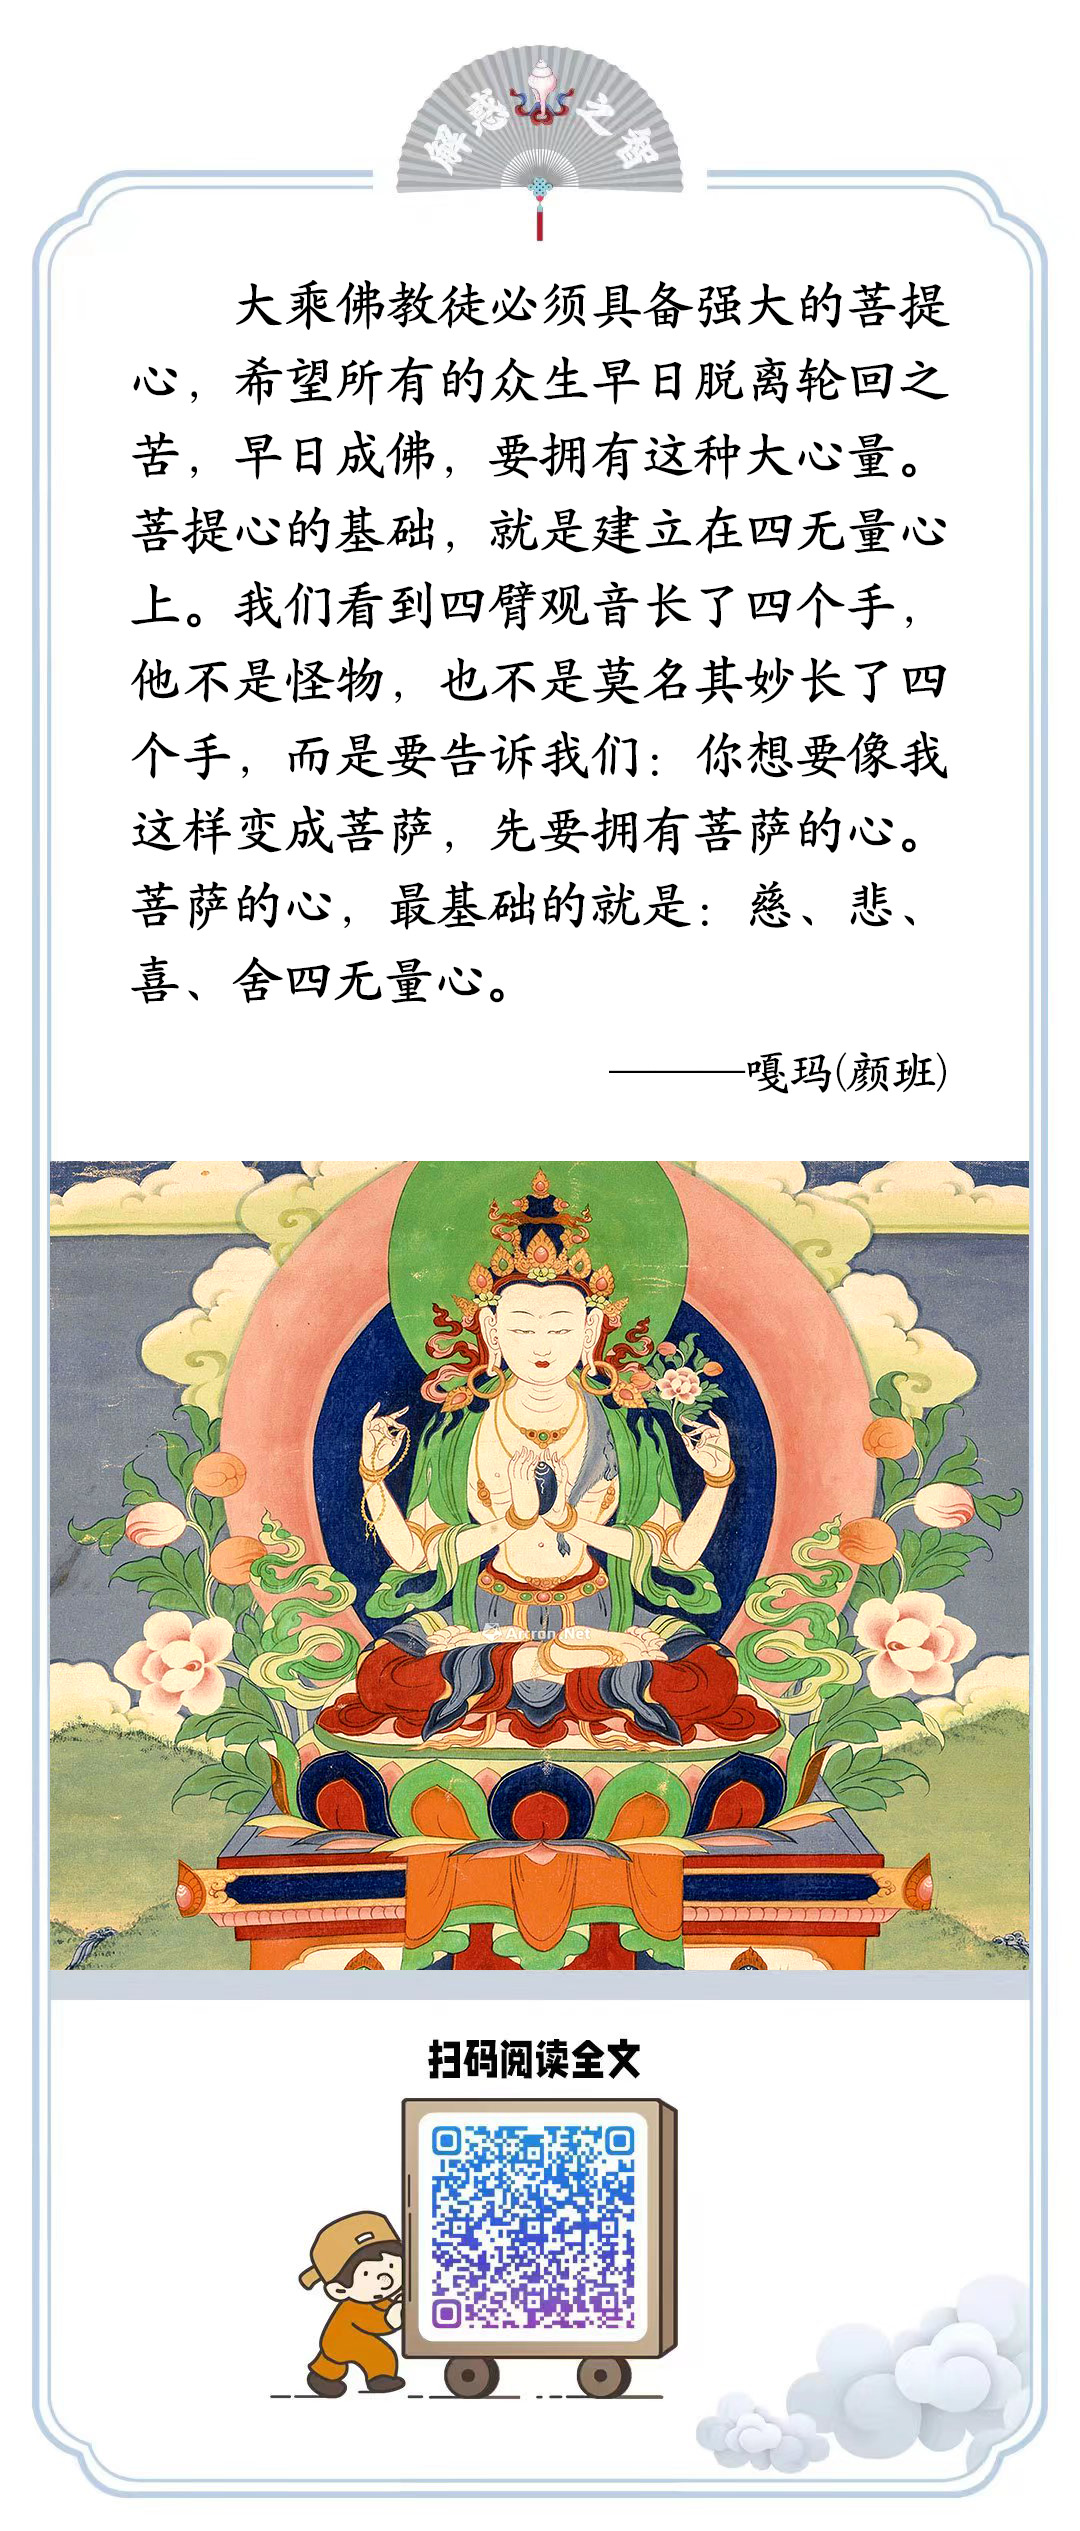 解惑之智
大乘佛教徒必须具备强大的菩提
心，希望所有的众生早日脱离轮回之
苦，早日成佛，要拥有这种大心量。
菩提心的基础，就是建立在四无量心
上。我们看到四臂观音长了四个手，
他不是怪物，也不是莫名其妙长了四
个手，而是要告诉我们：你想要像我
这样变成菩萨，先要拥有菩萨的心。
菩萨的心，最基础的就是：慈、悲、
喜、舍四无量心。
———嘎玛(颜班)
Artron.Net
扫码阅读全文